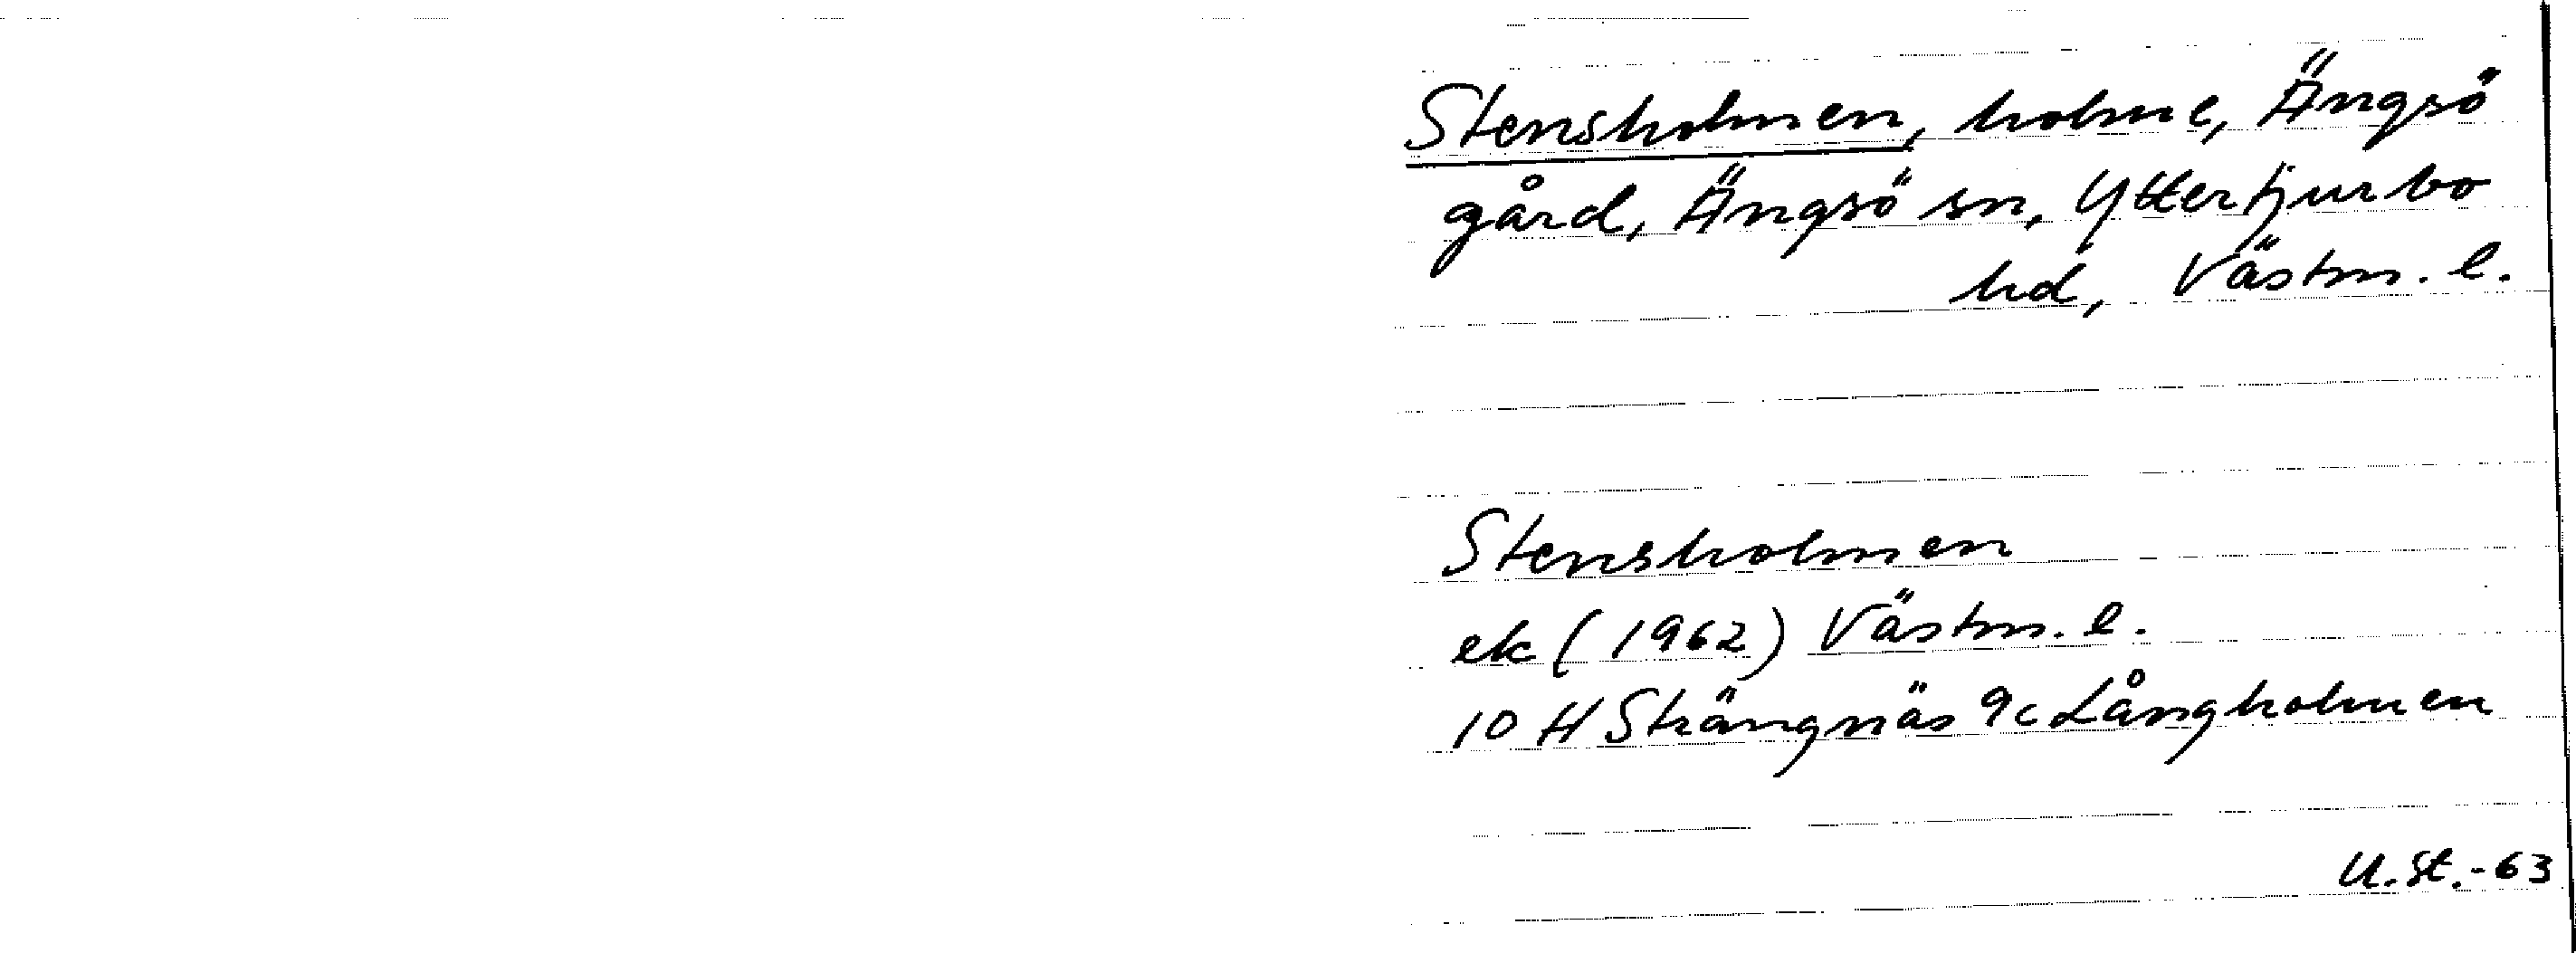 Stensholmen, holme, Ängsö
gård, Ängsö sn, Yttertjurbo
hd, Västm. l.
Stensholmen
ek (1962) Västm. l.
10 H Strängnäs 9c Långholmen
U.St.-63